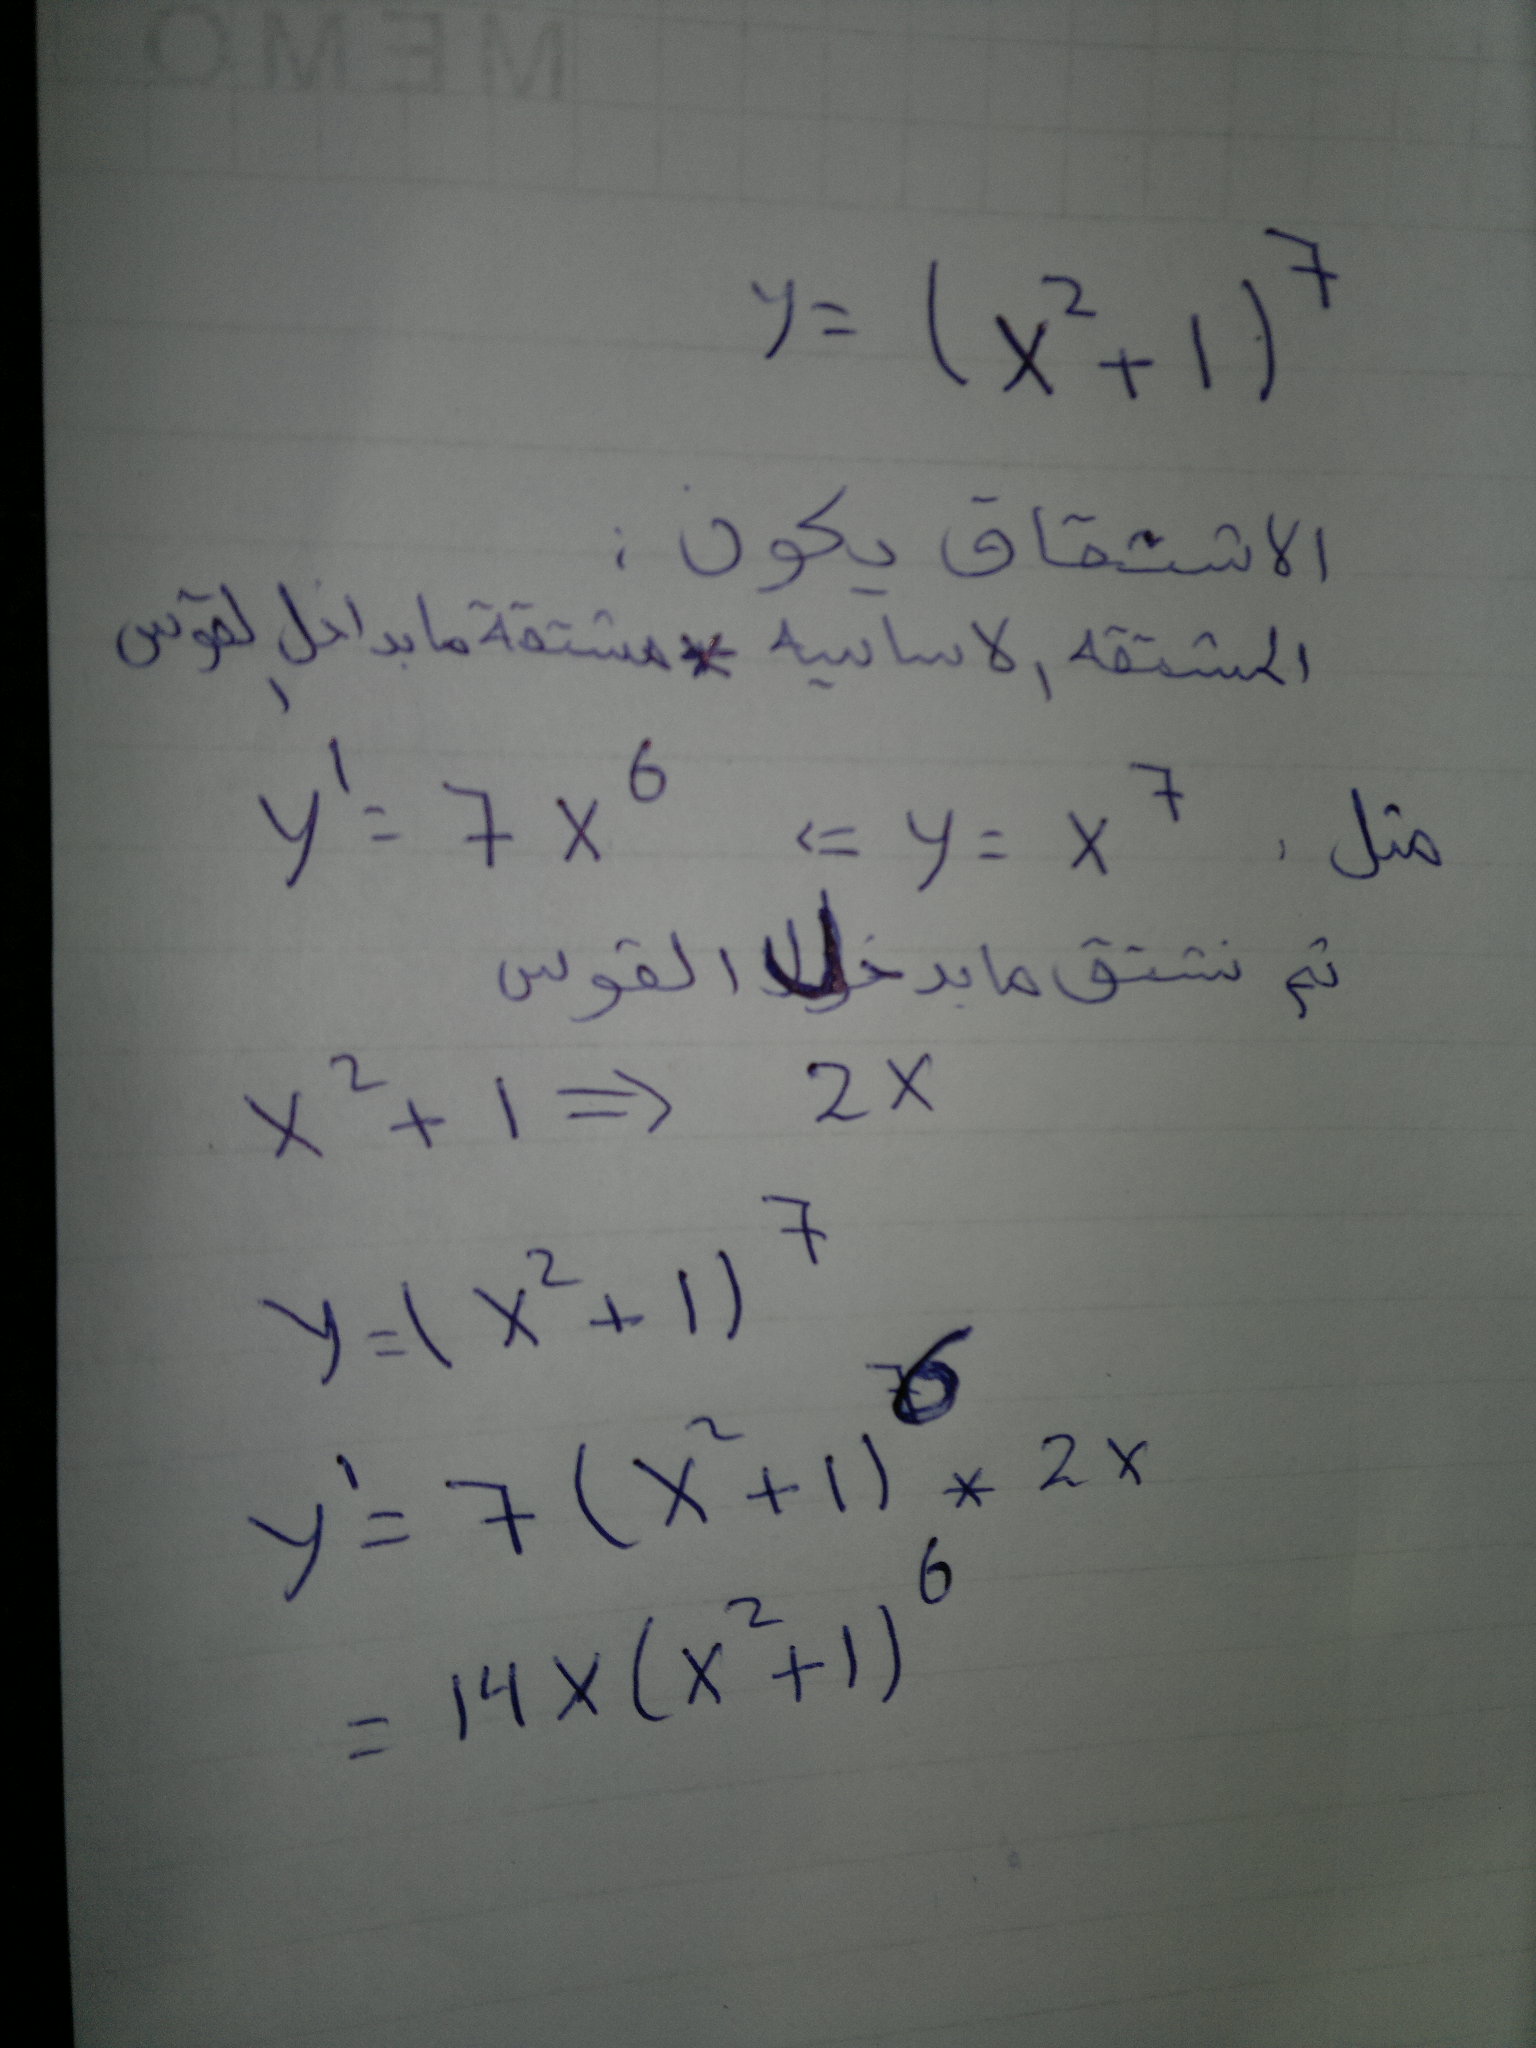 MEMO
y = (x²+1)⁷
الاشتقاق يكون :
المشتقه الاساسيه * مشتقة ما بداخل القوس
مثل : y = x⁷ => y' = 7x⁶
ثم نشتق ما بدخل القوس
x²+1 => 2x
y = (x²+1)⁷
y' = 7(x²+1)⁶ * 2x
= 14x(x²+1)⁶